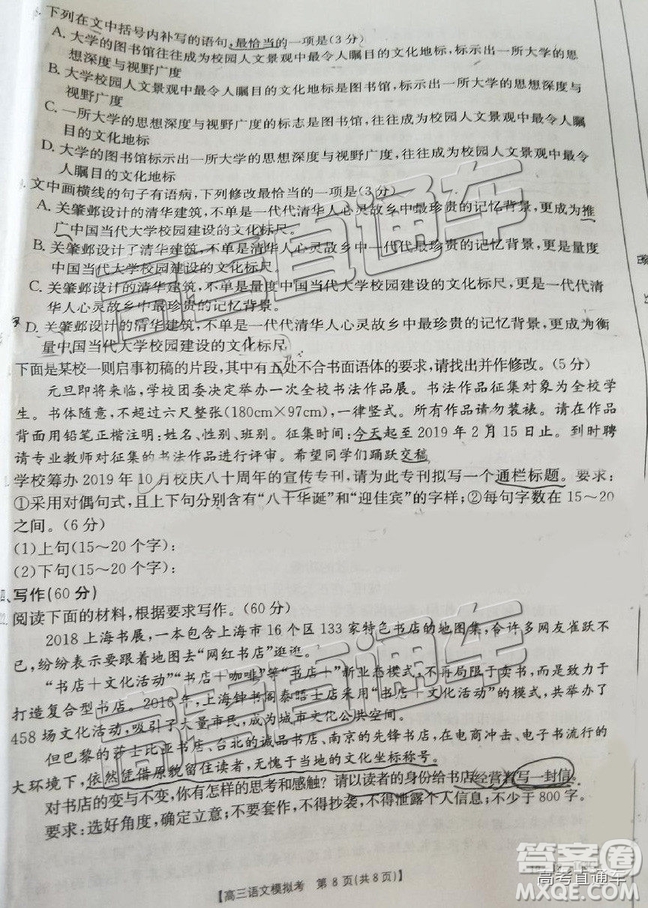 下列在文中括号内补写的语句,最恰当的一项是(3分)
A. 大学的图书馆往往成为校园人文景观中最令人瞩目的文化地标,标示出一所大学的思
想深度与视野广度
B. 大学校园人文景观中最令人瞩目的文化地标,标示出一所大学的思想深度与
视野广度
C. 一所大学的思想深度与视野广度的标志是图书馆,往往成为校园人文景观中最令人瞩
目的文化地标
D. 大学的图书馆标示出一所大学的思想深度与视野广度,往往成为校园人文景观中最令
人瞩目的文化地标
文中画横线的句子有语病,下列修改最恰当的一项是(3分)
A. 关肇邺设计的清华建筑,不单是一代代清华人心灵故乡中最珍贵的记忆背景,更成为推
广中国当代大学校园建设的文化标尺。
B. 关肇邺设计了清华建筑,不单是一代代清华人心灵故乡中最珍贵的记忆背景,更是量度
中国当代大学校园建设的文化标尺
C. 关肇邺设计的清华建筑,不单是中国当代大学校园建设的文化标尺,更是一代代
清华人心灵故乡中最珍贵的记忆背景。
D. 关肇邺设计的清华建筑,不单是一代代清华人心灵故乡中最珍贵的记忆背景,更成为衡
量中国当代大学校园建设的文化标尺
下面是某校一则启事初稿的片段,其中有五处不合书面语体的要求,请找出并作修改。(5分)
元旦即将来临,学校团委决定筹办一次全校书法作品展。书法作品征集对象为全校学
生。书体随意,不超过六尺整张(180cm×97cm),一律竖式。所有作品请勿装裱。请在作品
背面用铅笔正楷注明:姓名、性别、班别。征集时间:今天起至2019年2月15日止。到时聘
请专业教师对征集的书法作品进行评审。希望同学们踊跃交稿
学校筹办2019年10月校庆八十周年的宣传专刊,请为此专刊拟写一个通栏标题。要求:
①采用对偶句式,且上下句分别含有“八十华诞”和“迎佳宾”的字样;②每句字数在15~20
之间。(6分)
(1)上句(15~20个字):
(2)下句(15~20个字):
四、写作(60分)
22. 阅读下面的材料,根据要求写作。(60分)
2018上海书展,一本包含上海市16个区133家特色书店的地图集,令许多网友雀跃不
已,纷纷表示要跟着地图去“网红书店”逛逛。
“书店+文化活动”“书店+咖啡”等“书店+”新业态模式,不再局限于卖书,而是致力于
打造复合型书店。2016年,上海钟书阁泰晤士店采用“书店+文化活动”的模式,共举办
458场文化活动,吸引了大量市民,成为城市文化公共空间。
但巴黎的莎士比亚书店、台北的诚品书店、南京的先锋书店,在电商冲击、电子书流行的
大环境下,依然凭借原貌留住读者,无愧于当地的文化坐标称号。
对书店的变与不变,你有怎样的思考和感触?请以读者的身份给书店经营者写一封信。
要求:选好角度,确定立意;不要套作,不得抄袭,不得泄露个人信息;不少于800字。
【高三语文模拟考 第8页(共8页)】
高考直通车
高考直通车
答案圈
高考直通车